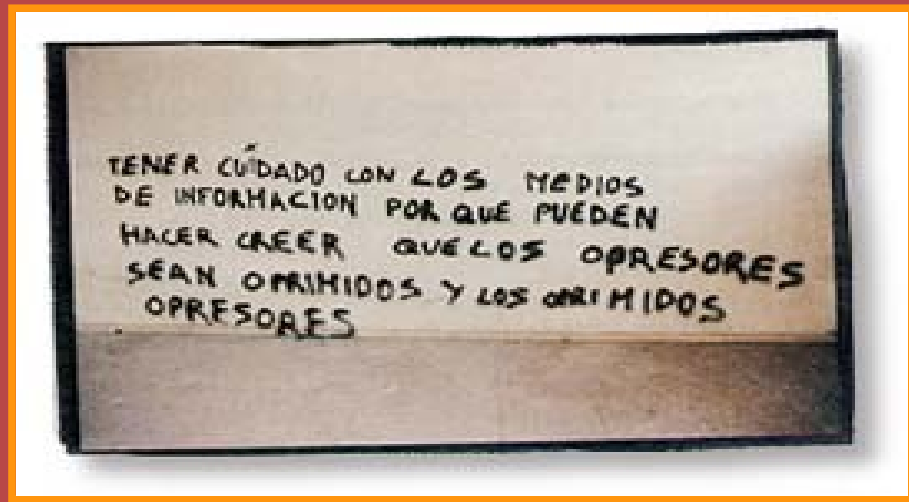 TENER CUIDADO CON LOS MEDIOS
DE INFORMACION POR QUE PUEDEN
HACER CREER QUE LOS OPRESORES
SEAN OPRIMIDOS Y LOS OPRIMIDOS
OPRESORES